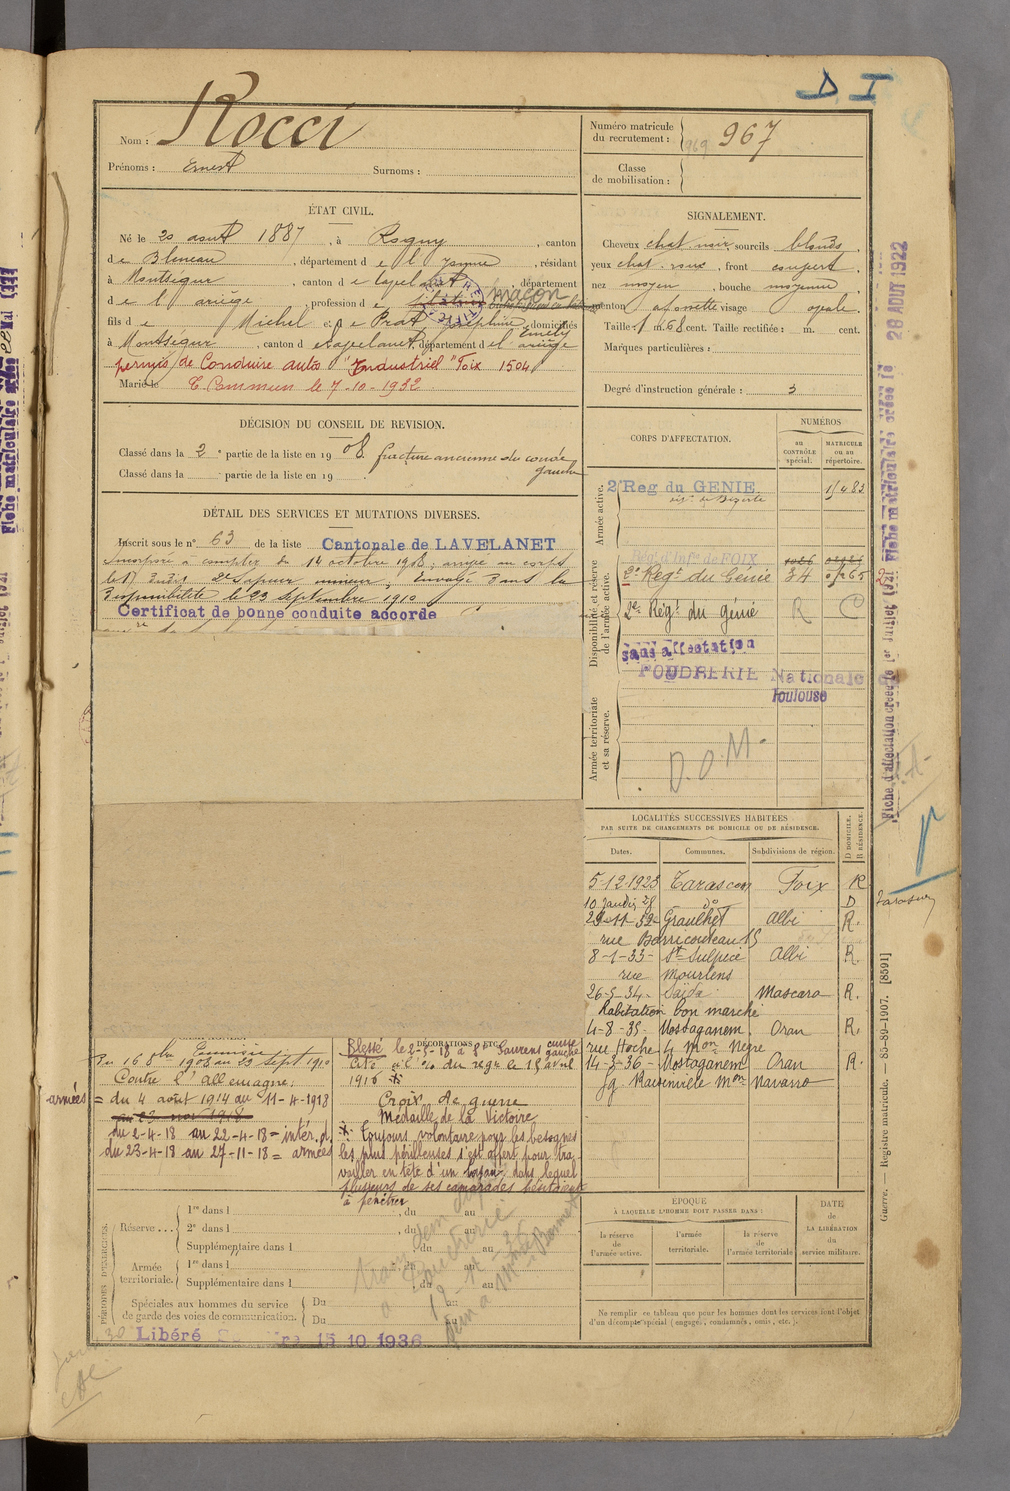 D I
Nom : Rocci
Prénoms : Ernest Surnoms :
Numéro matricule du recrutement : 969 967
Classe de mobilisation :
ÉTAT CIVIL.
Né le 20 août 1887, à Rogny, canton
de Bleneau, département de l'Yonne, résidant
à Montségur, canton de Lapelanet, département
de l'ariège, profession de maçon
fils de Michel et de Prat Joséphine Emély domiciliés
à Montségur, canton de Lapelanet, département de l'ariège
permis de Conduire auto "Industriel" Foix 1504
Marié le C Commun le 7-10-1932
SIGNALEMENT.
Cheveux chat. noir, sourcils blonds,
yeux chat. roux, front couvert,
nez moyen, bouche moyenne,
menton à fossette visage ovale.
Taille 1 m. 68 cent. Taille rectifiée : m. cent.
Marques particulières :
Degré d'instruction générale : 3
DÉCISION DU CONSEIL DE REVISION.
Classé dans la 2e partie de la liste en 1908. fracture ancienne du coude gauche
Classé dans la partie de la liste en 19
DÉTAIL DES SERVICES ET MUTATIONS DIVERSES.
Inscrit sous le n° 63 de la liste Cantonale de LAVELANET
Incorporé à compter du 14 octobre 1908, arrivé au corps
le dit 2e sapeur mineur, Envoyé dans la
Disponibilité le 23 septembre 1910
Certificat de bonne conduite accordé
CORPS D'AFFECTATION.
NUMÉROS
au CONTRÔLE spécial.
MATRICULE ou au répertoire.
Armée active.
2e Reg du GENIE
Disponibilité et réserve de l'armée active.
Rég. d'Infie de FOIX
2e Regt du Génie 34
2e Régt du génie R C
Sans affectation
POUDRERIE Nationale de
Toulouse
Armée territoriale et sa réserve.
D.O.M.
LOCALITÉS SUCCESSIVES HABITÉES
PAR SUITE DE CHANGEMENTS DE DOMICILE OU DE RÉSIDENCE.
Dates. Communes. Subdivisions de région. D DOMICILE. R RÉSIDENCE.
5-12-1928 Tarascon Foix R
do D Tarascon
Graulhet Albi R.
rue Barricouteau 15
8-1-33- St Sulpice Albi R.
rue Mourlens
26-5-34- Saïda Mascara R.
habitation bon marché
4-8-35- Mostaganem. Oran R.
rue Hoche 4 Mon Nègre
14-3-36- Mostaganem Oran R.
fg. Raisinville Mon Navarro
Tunisie
Du 16 8bre 1908 au 23 sept 1910
Contre l'allemagne:
armées = du 4 août 1914 au 11-4-1918
au 23 nov 1918
du 2-4-18 au 22-4-18 = intér. d.
du 23-4-18 au 27-11-18 = armées
DÉCORATIONS, ETC.
Blessé le 2-5-18 à St Laurens cuisse gauche
Cité à l'o/ du régt le 15 avril
1916
Croix de guerre
Médaille de la Victoire
Toujours volontaire pour les besognes
les plus périlleuses s'est offert pour tra-
vailler en tête d'un boyau dans lequel
plusieurs de ses camarades hésitaient
à pénétrer
PÉRIODES D'EXERCICES.
Réserve ... 1re dans l , du au
2e dans l , du au
Supplémentaire dans l , du au
Armée territoriale. 1re dans l , du au
Supplémentaire dans l , du au
Spéciales aux hommes du service de garde des voies de communication. Du au
Du au
Libéré 15 10 1936
ÉPOQUE
À LAQUELLE L'HOMME DOIT PASSER DANS :
la réserve de l'armée active.
l'armée territoriale.
la réserve de l'armée territoriale
DATE de LA LIBÉRATION du service militaire.
Ne remplir ce tableau que pour les hommes dont les services font l'objet
d'un décompte spécial (engagés, condamnés, omis, etc.).
Fiche matriculaire créée le 28 AOUT 1922
Guerre. — Registre matricule. — 85-89-1907. [8591]